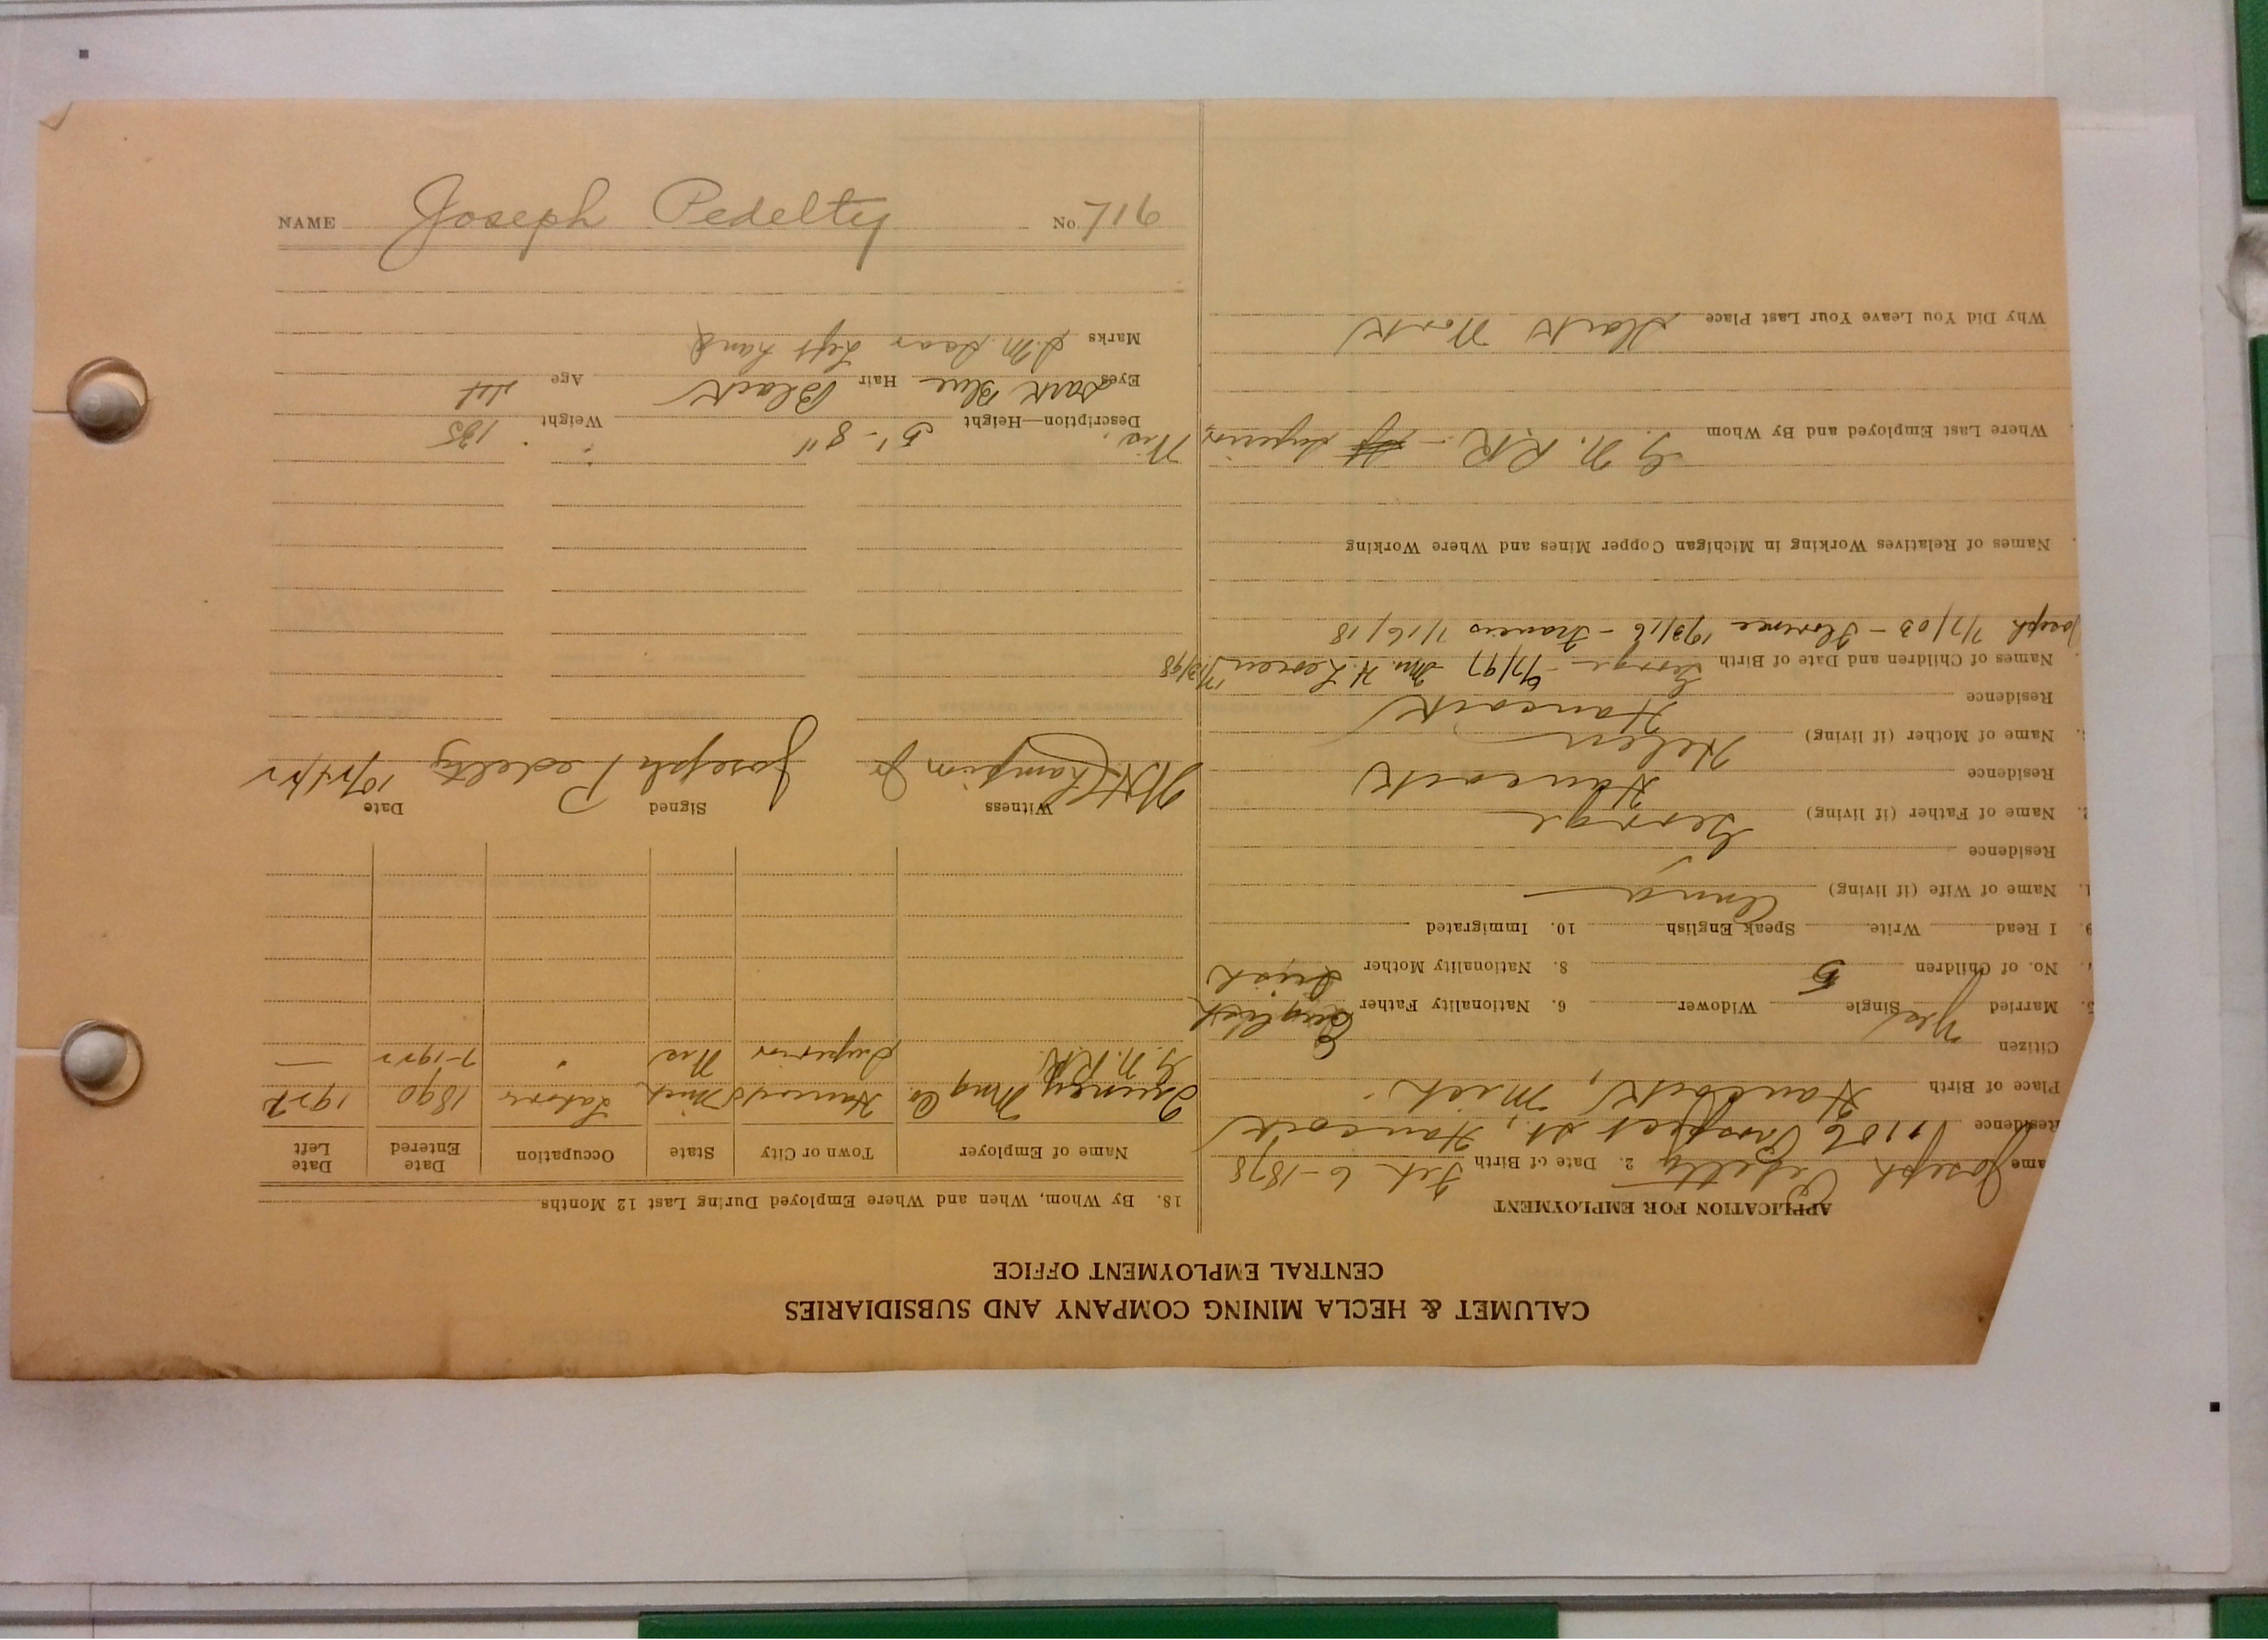 NAME Joseph Pedelty No. 716
CALUMET & HECLA MINING COMPANY AND SUBSIDIARIES
CENTRAL EMPLOYMENT OFFICE
APPLICATION FOR EMPLOYMENT
ame Joseph Pedelty 2. Date of Birth Feb 6-1878
Residence Prospect St., Hancock
Place of Birth Hancock, Mich.
Citizen
5. Married Yes Single Widower 6. Nationality Father English
No. of Children 5 8. Nationality Mother Irish
9. I Read Write Speak English 10. Immigrated
1. Name of Wife (if living) Anna
Residence
2. Name of Father (if living) George
Residence Hancock
Name of Mother (if living) Helen
Residence Hancock
Names of Children and Date of Birth George - Mrs. H.
Joseph 7/7/03 - Florence 10/3/16 - Francis 1/16/18
Names of Relatives Working in Michigan Copper Mines and Where Working
Where Last Employed and By Whom G. N. RR. - Superior, Wis.
Why Did You Leave Your Last Place Slack Work
18. By Whom, When and Where Employed During Last 12 Months
Name of Employer Town or City State Occupation Date Entered Date Left
Quincy Mng Co Hancock Mich Labor 1890 1922
G. N. RR. Superior Wis " 7-1922 —
Witness Signed Date
Champion Jr Joseph Pedelty
Description—Height 5'-8" Weight 185
Eyes Dark Blue Hair Black Age
Marks Scar Left hand